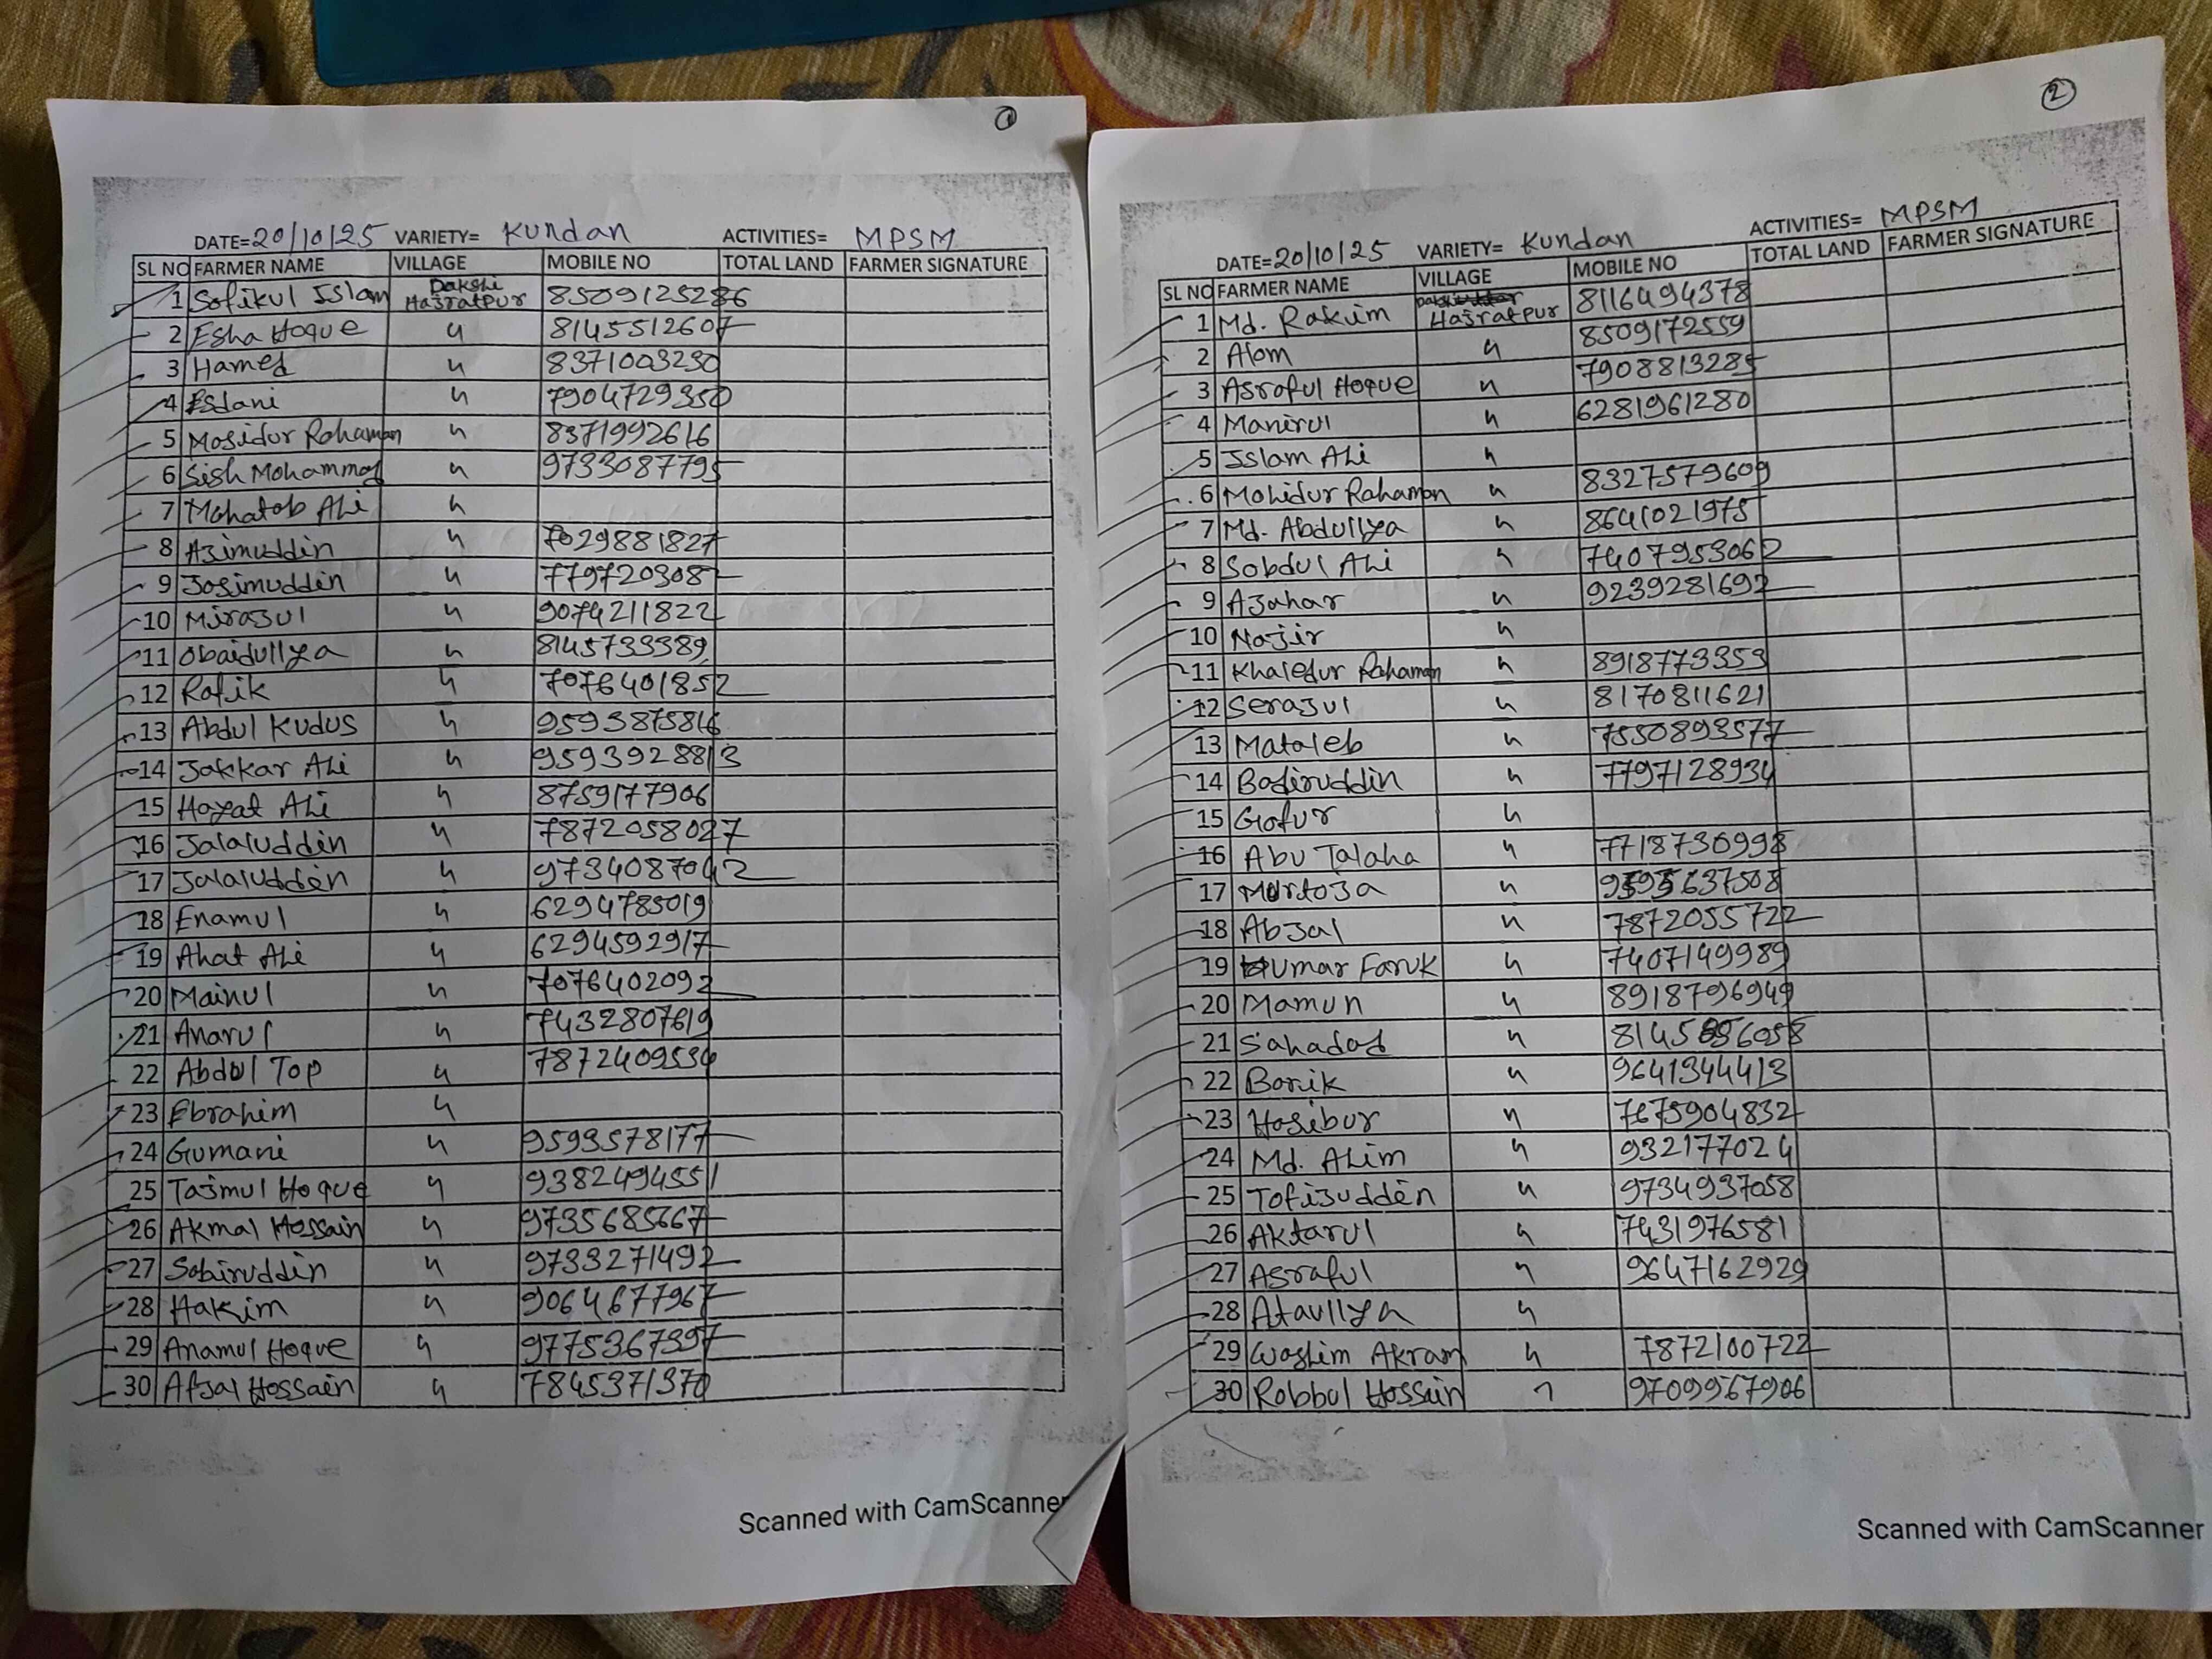 1
DATE=20/10/25 VARIETY= Kundan ACTIVITIES= MPSM
SL NO FARMER NAME VILLAGE MOBILE NO TOTAL LAND FARMER SIGNATURE
1 Sofikul Islam Dakshi Hasratpur 8509125286
2 Esha Hoque 〃 8145512607
3 Hamed 〃 8371003230
4 Eslani 〃 7904729350
5 Mosidur Rahaman 〃 8371992616
6 Sish Mohammad 〃 9733087795
7 Mahatab Ali 〃
8 Azimuddin 〃 7029881827
9 Josimuddin 〃 7797203087
10 Mirazul 〃 9074211822
11 Obaidullya 〃 8145733389
12 Rafik 〃 7076401852
13 Abdul Kudus 〃 9593875816
14 Jakkar Ali 〃 9593928813
15 Hayat Ali 〃 8759177906
16 Jalaluddin 〃 7872058027
17 Jalaluddin 〃 9734087042
18 Enamul 〃 6294785019
19 Ahat Ali 〃 6294592917
20 Mainul 〃 7076402092
21 Anarul 〃 7432807619
22 Abdul Top 〃 7872409534
23 Ebrahim 〃
24 Gumani 〃 9593578177
25 Tajmul Hoque 〃 9382494551
26 Akmal Hossain 〃 9735685667
27 Sabiruddin 〃 9733271492
28 Hakim 〃 9064677967
29 Anamul Hoque 〃 9775367397
30 Afjal Hossain 〃 7845371370
Scanned with CamScanner
2
DATE=20/10/25 VARIETY= Kundan ACTIVITIES= MPSM
SL NO FARMER NAME VILLAGE MOBILE NO TOTAL LAND FARMER SIGNATURE
1 Md. Rakim Hasratpur 8116494378
2 Alom 〃 8509172559
3 Asraful Hoque 〃 7908813285
4 Manirul 〃 6281961280
5 Islam Ali 〃
6 Mohidur Rahaman 〃 8327579609
7 Md. Abdullya 〃 8641021975
8 Sobdul Ali 〃 7407953062
9 Azahar 〃 9239281692
10 Najir 〃
11 Khaledur Rahaman 〃 8918773353
12 Serajul 〃 8170811621
13 Mataleb 〃 7550893577
14 Bodiruddin 〃 7797128934
15 Gofur 〃
16 Abu Talaha 〃 7718730998
17 Murtoza 〃
18 Abjal 〃 7872055722
19 Umar Faruk 〃 7407149989
20 Mamun 〃 8918796949
21 Sahadad 〃
22 Barik 〃 9641344413
23 Hosibur 〃 7675904832
24 Md. Alim 〃 932177024
25 Tofijuddin 〃 9734937058
26 Aktarul 〃 7431976581
27 Asraful 〃 9647162929
28 Ataullya 〃
29 Woslim Akram 〃 7872100722
30 Robbul Hossain 〃 9709967906
Scanned with CamScanner